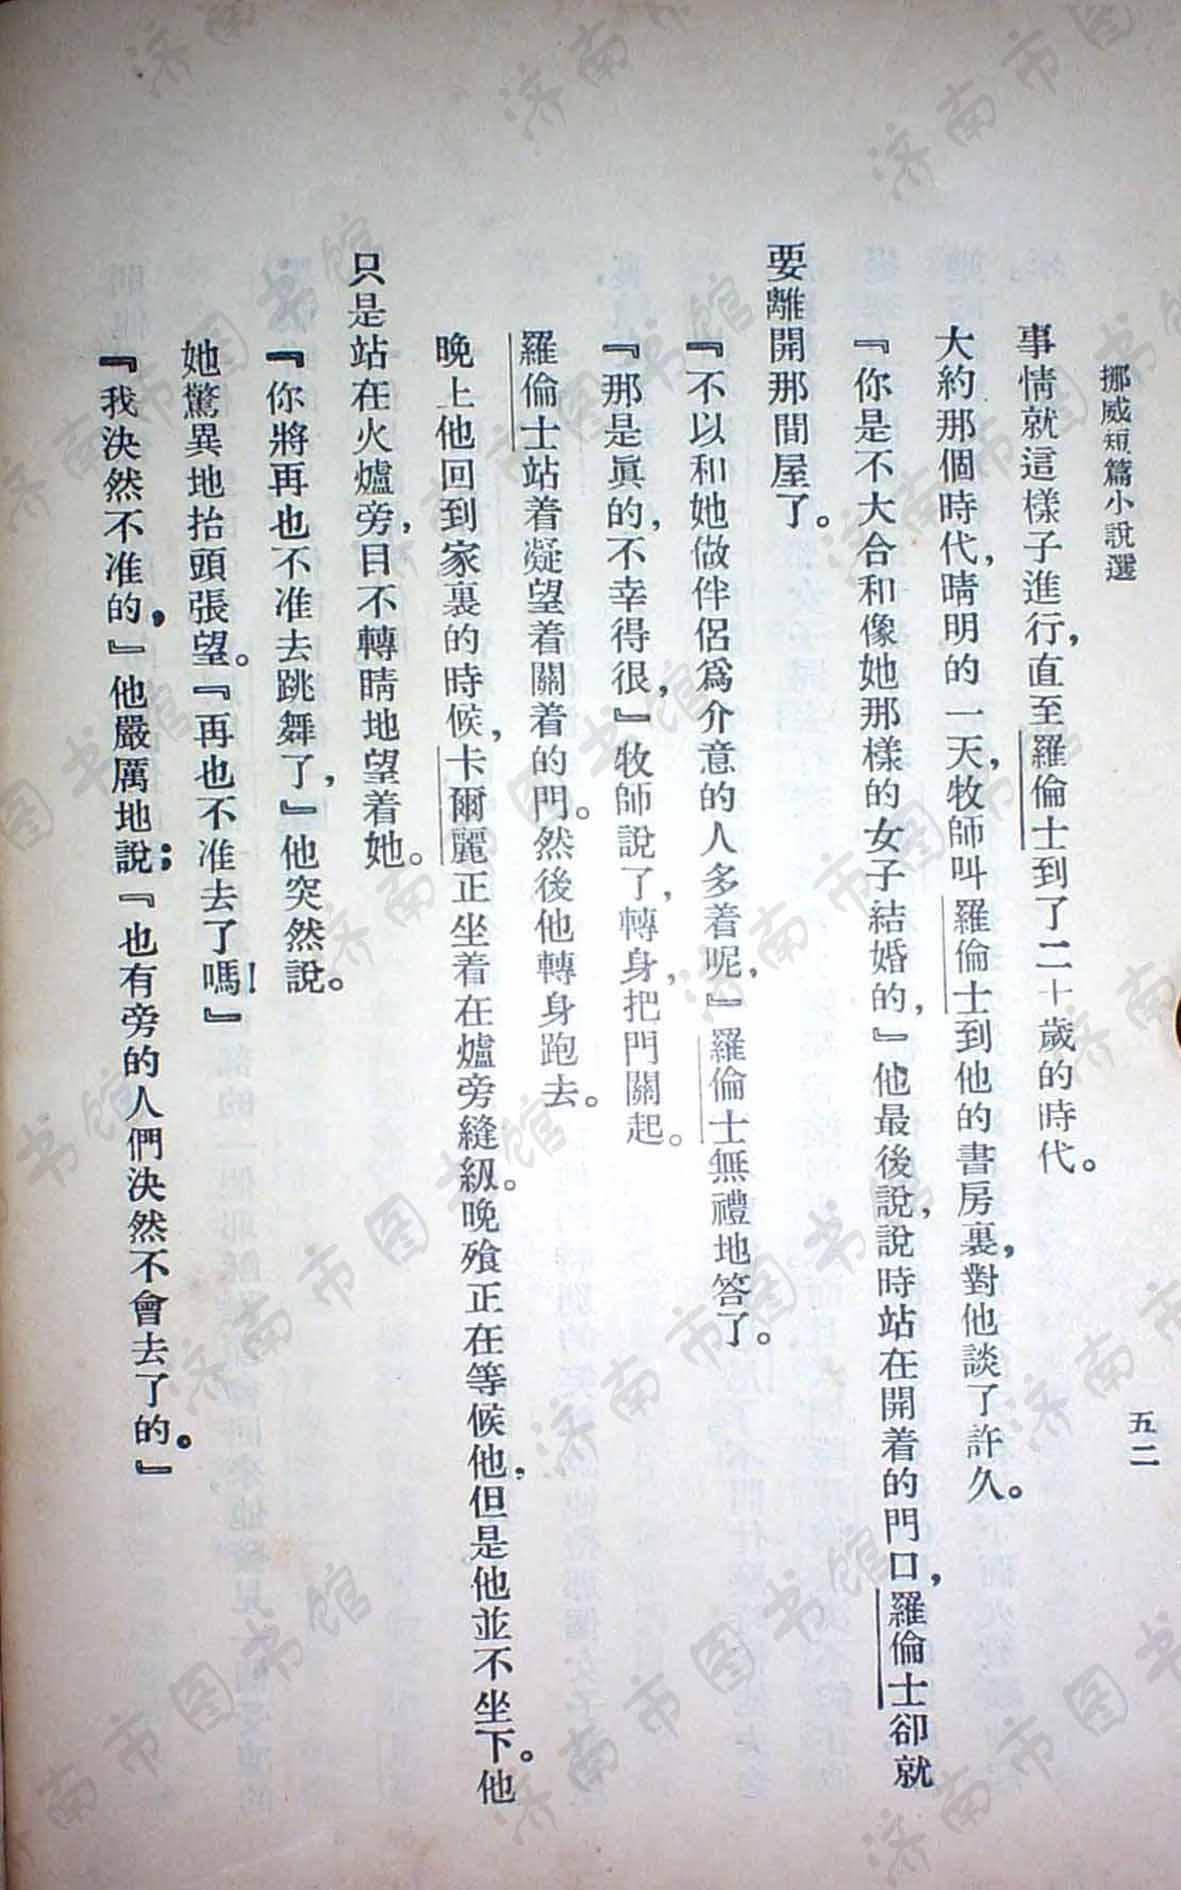 挪威短篇小說選
五二
事情就這樣子進行，直至羅倫士到了二十歲的時代。
大約那個時代，晴明的一天，牧師叫羅倫士到他的書房裏，對他談了許久。
『你是不大合和像她那樣的女子結婚的，』他最後說，說時站在開着的門口，羅倫士卻就
要離開那間屋了。
『不以和她做伴侶爲介意的人多着呢，』羅倫士無禮地答了。
『那是眞的，不幸得很，』牧師說了，轉身，把門關起。
羅倫士站着凝望着關着的門。然後他轉身跑去。
晚上他回到家裏的時候，卡爾麗正坐着在爐旁縫級。晚飱正在等候他，但是他並不坐下。他
只是站在火爐旁，目不轉睛地望着她。
『你將再也不准去跳舞了，』他突然說。
她驚異地抬頭張望。『再也不准去了嗎！』
『我決然不准的，』他嚴厲地說；『也有旁的人們決然不會去了的。』
济南市图书馆